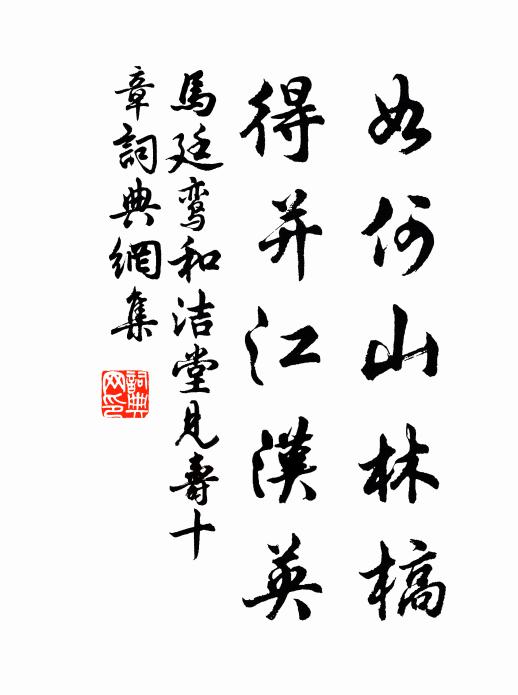 如何山林槁
得并江漢英
馬廷鸾和洁堂見壽十
章詞典網集
詞典
网印